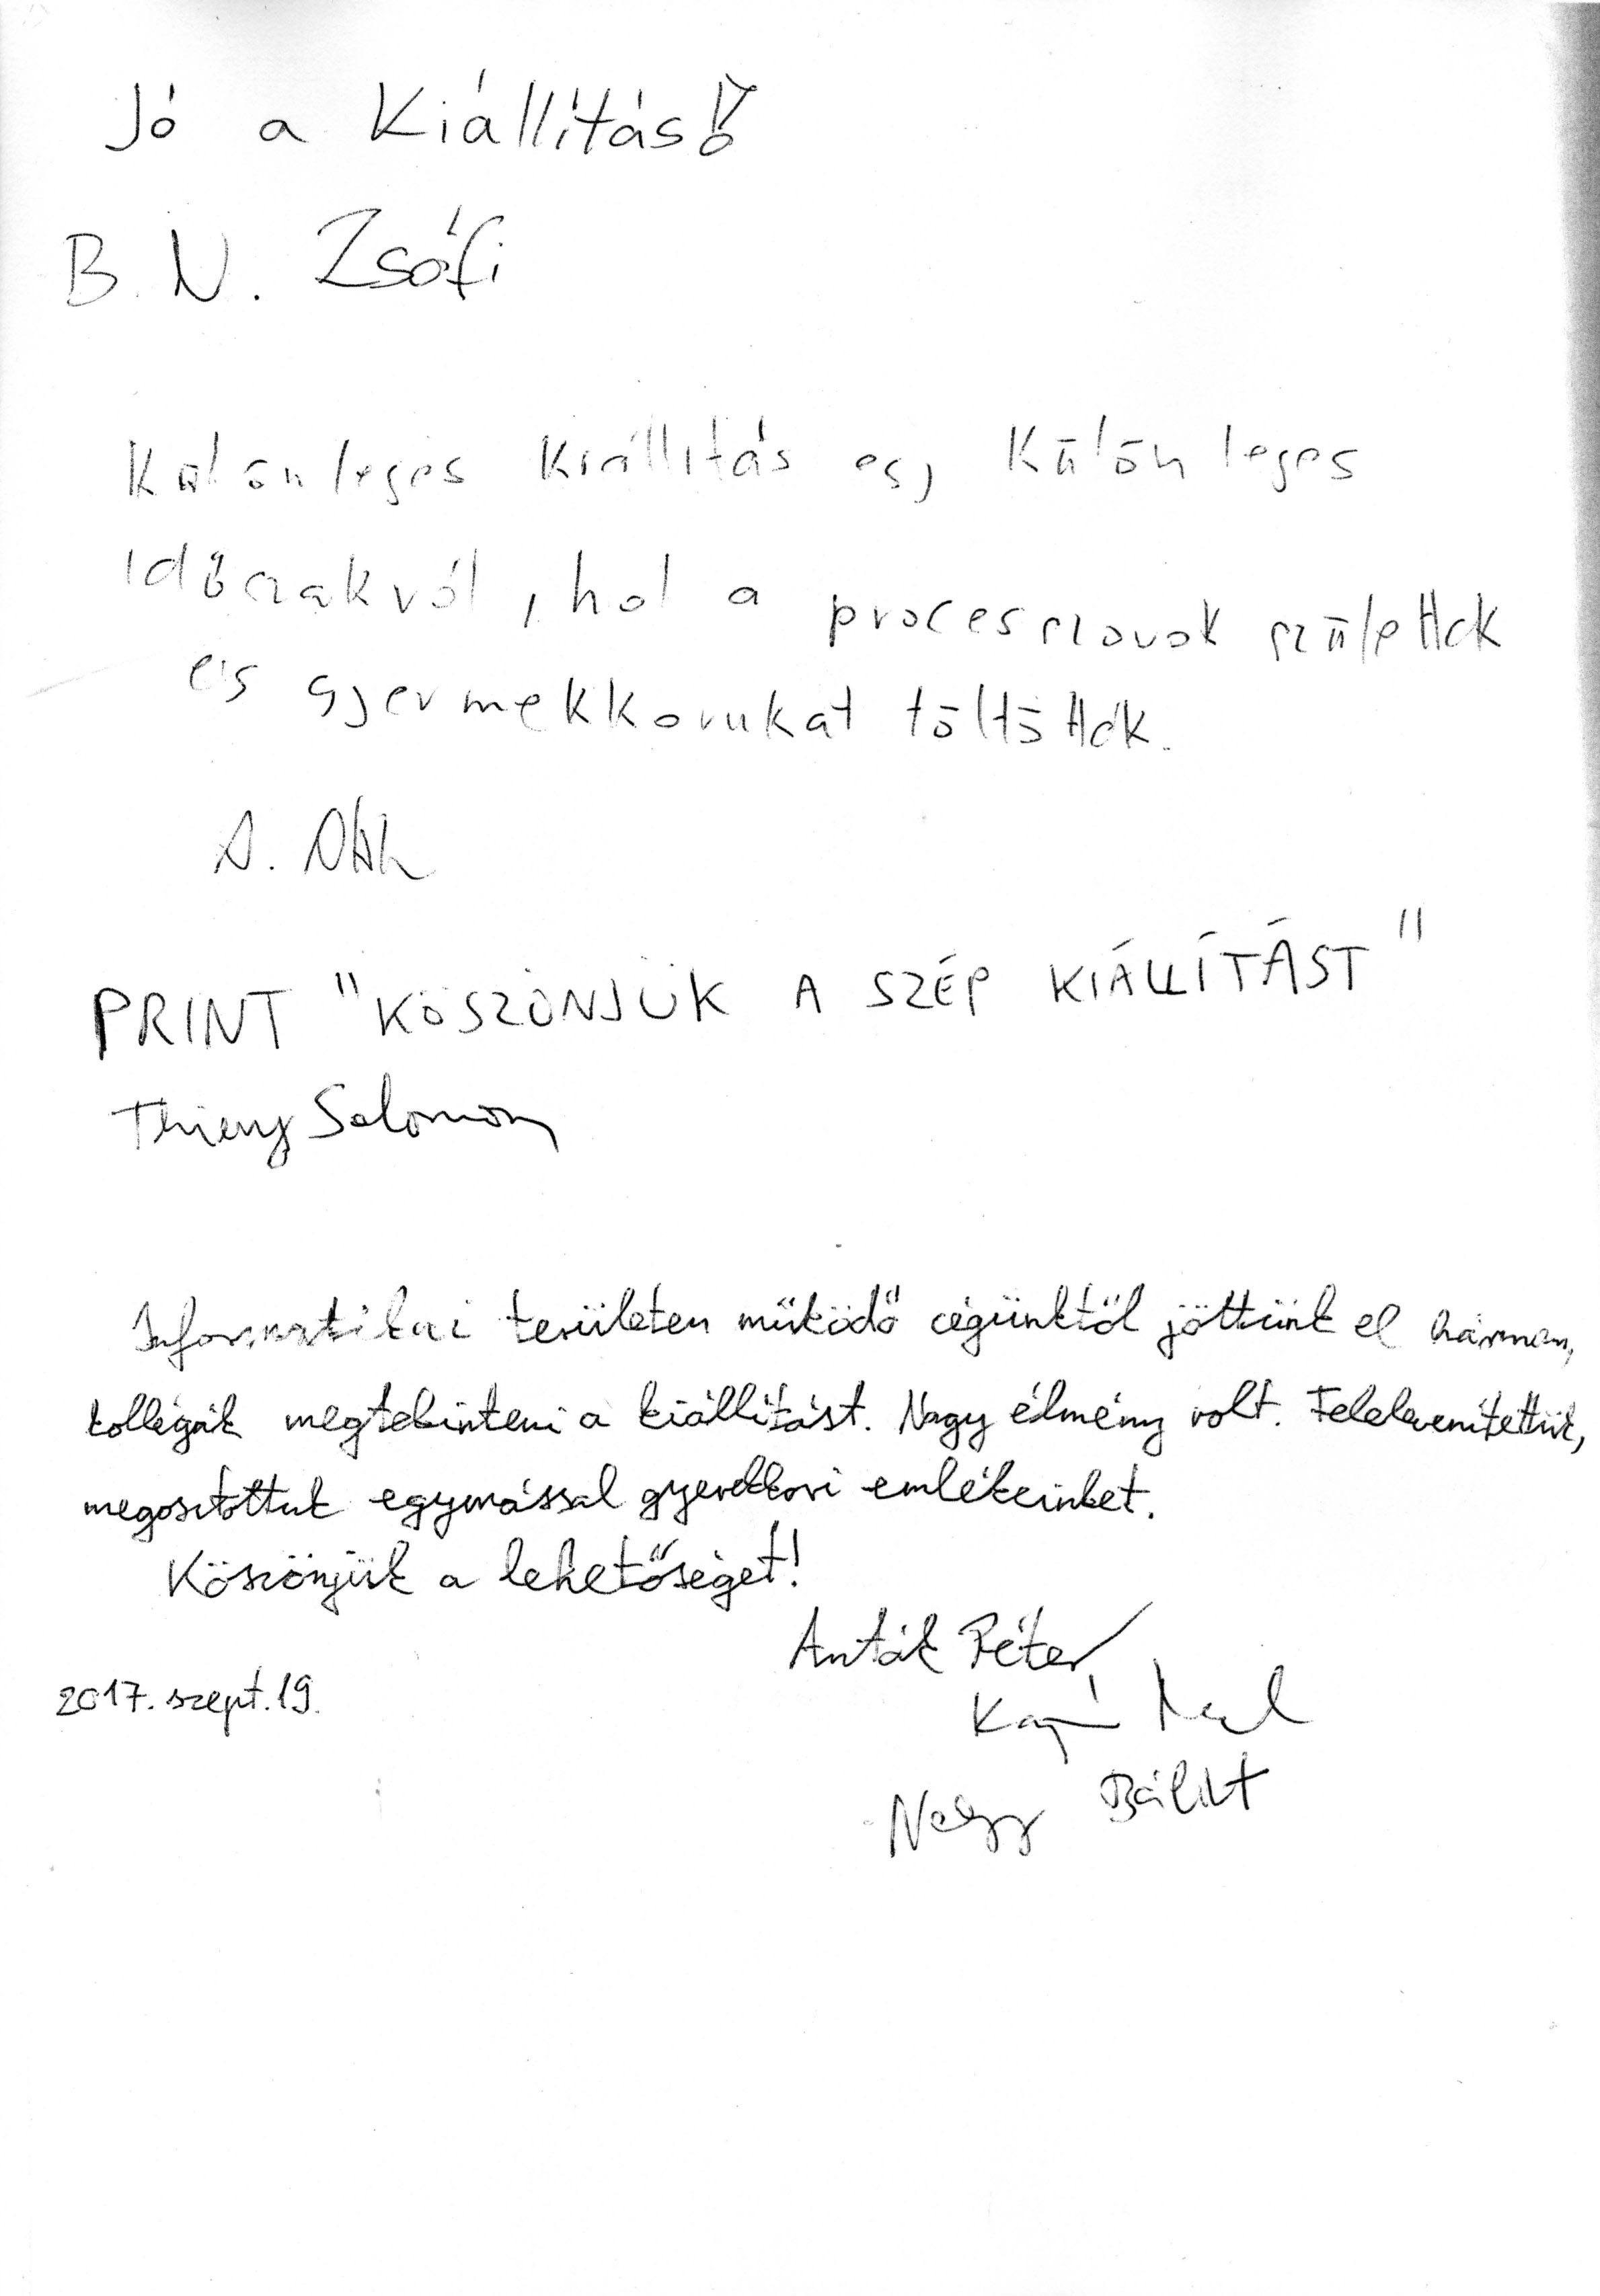 Jó a Kiállítás!
B. N. Zsófi
Különleges kiállítás egy különleges
időszakról, hol a processzorok születtek
és gyermekkorukat töltötték.
PRINT "KÖSZÖNJÜK A SZÉP KIÁLLÍTÁST"
Thierry Salomon
Informatikai területen működő cégünktől jöttünk el hárman,
kollégák megtekinteni a kiállítást. Nagy élmény volt. Felelevenítettük,
megosztottuk egymással gyerekkori emlékeinket.
Köszönjük a lehetőséget!
Anták Péter
2017. szept. 19.
Nagy Bálint